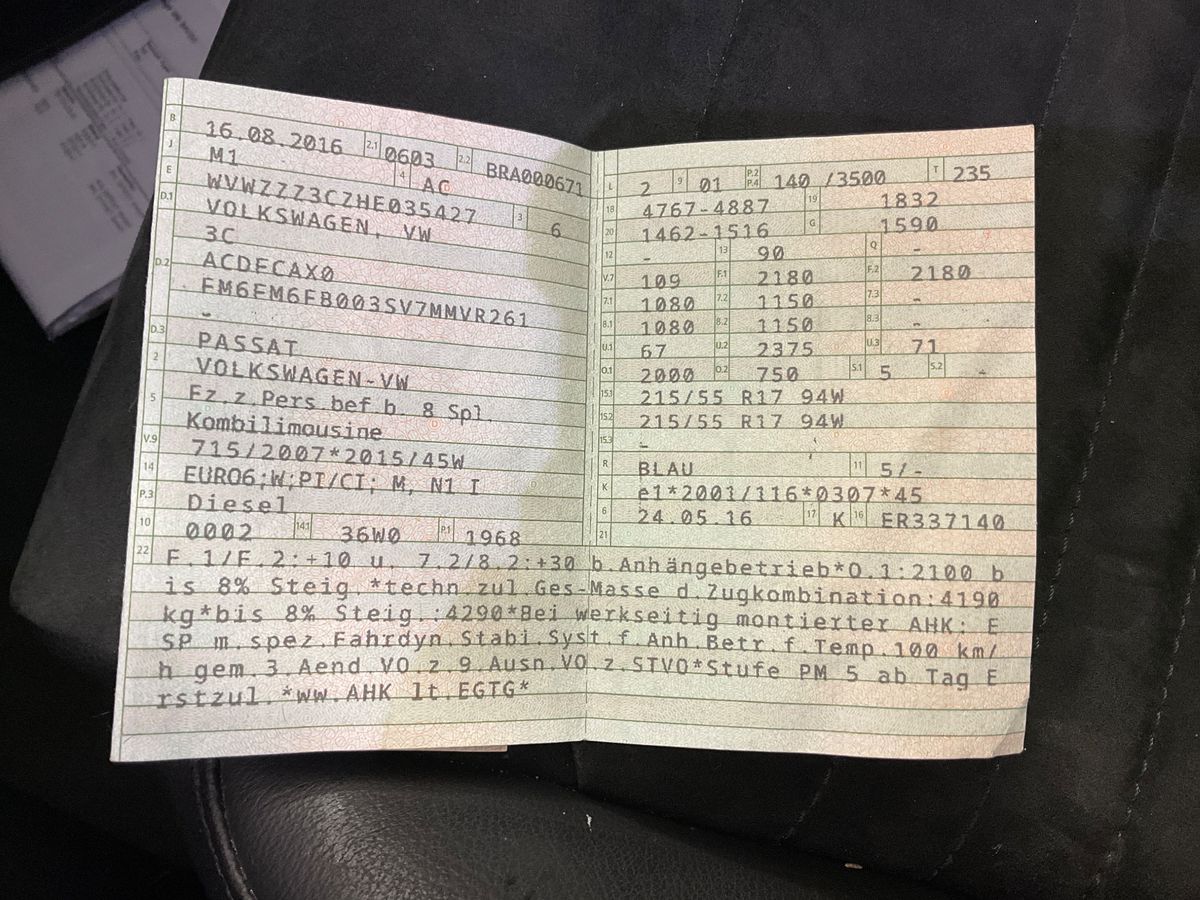 B 16.08.2016 2.1 0603 2.2 BRA000671
J M1 4 AC
E WVWZZZ3CZHE035427 3 6
D.1 VOLKSWAGEN, VW
3C
D.2 ACDFCAX0
FM6FM6FB003SV7MMVR261
-
D.3 PASSAT
2 VOLKSWAGEN-VW
5 Fz.z.Pers.bef.b. 8 Spl.
Kombilimousine
V.9 715/2007*2015/45W
14 EURO6;W;PI/CI; M, N1 I
P.3 Diesel
10 0002 14.1 36W0 P.1 1968
L 2 9 01 P.2 P.4 140 /3500 T 235
18 4767-4887 19 1832
20 1462-1516 G 1590
12 - 13 90 Q -
V.7 109 F.1 2180 F.2 2180
7.1 1080 7.2 1150 7.3 -
8.1 1080 8.2 1150 8.3 -
U.1 67 U.2 2375 U.3 71
O.1 2000 O.2 750 S.1 5 S.2 -
15.1 215/55 R17 94W
15.2 215/55 R17 94W
15.3 -
R BLAU 11 5/-
K e1*2001/116*0307*45
6 24.05.16 17 K 16 ER337140
21
22 F.1/F.2:+10 u. 7.2/8.2:+30 b.Anhängebetrieb*O.1:2100 b
is 8% Steig.*techn.zul.Ges-Masse d.Zugkombination:4190
kg*bis 8% Steig.:4290*Bei werkseitig montierter AHK: E
SP m.spez.Fahrdyn.Stabi.Syst.f.Anh.Betr.f.Temp.100 km/
h gem.3.Aend VO.z.9.Ausn.VO.z.STVO*Stufe PM 5 ab Tag E
rstzul.*ww.AHK lt.EGTG*